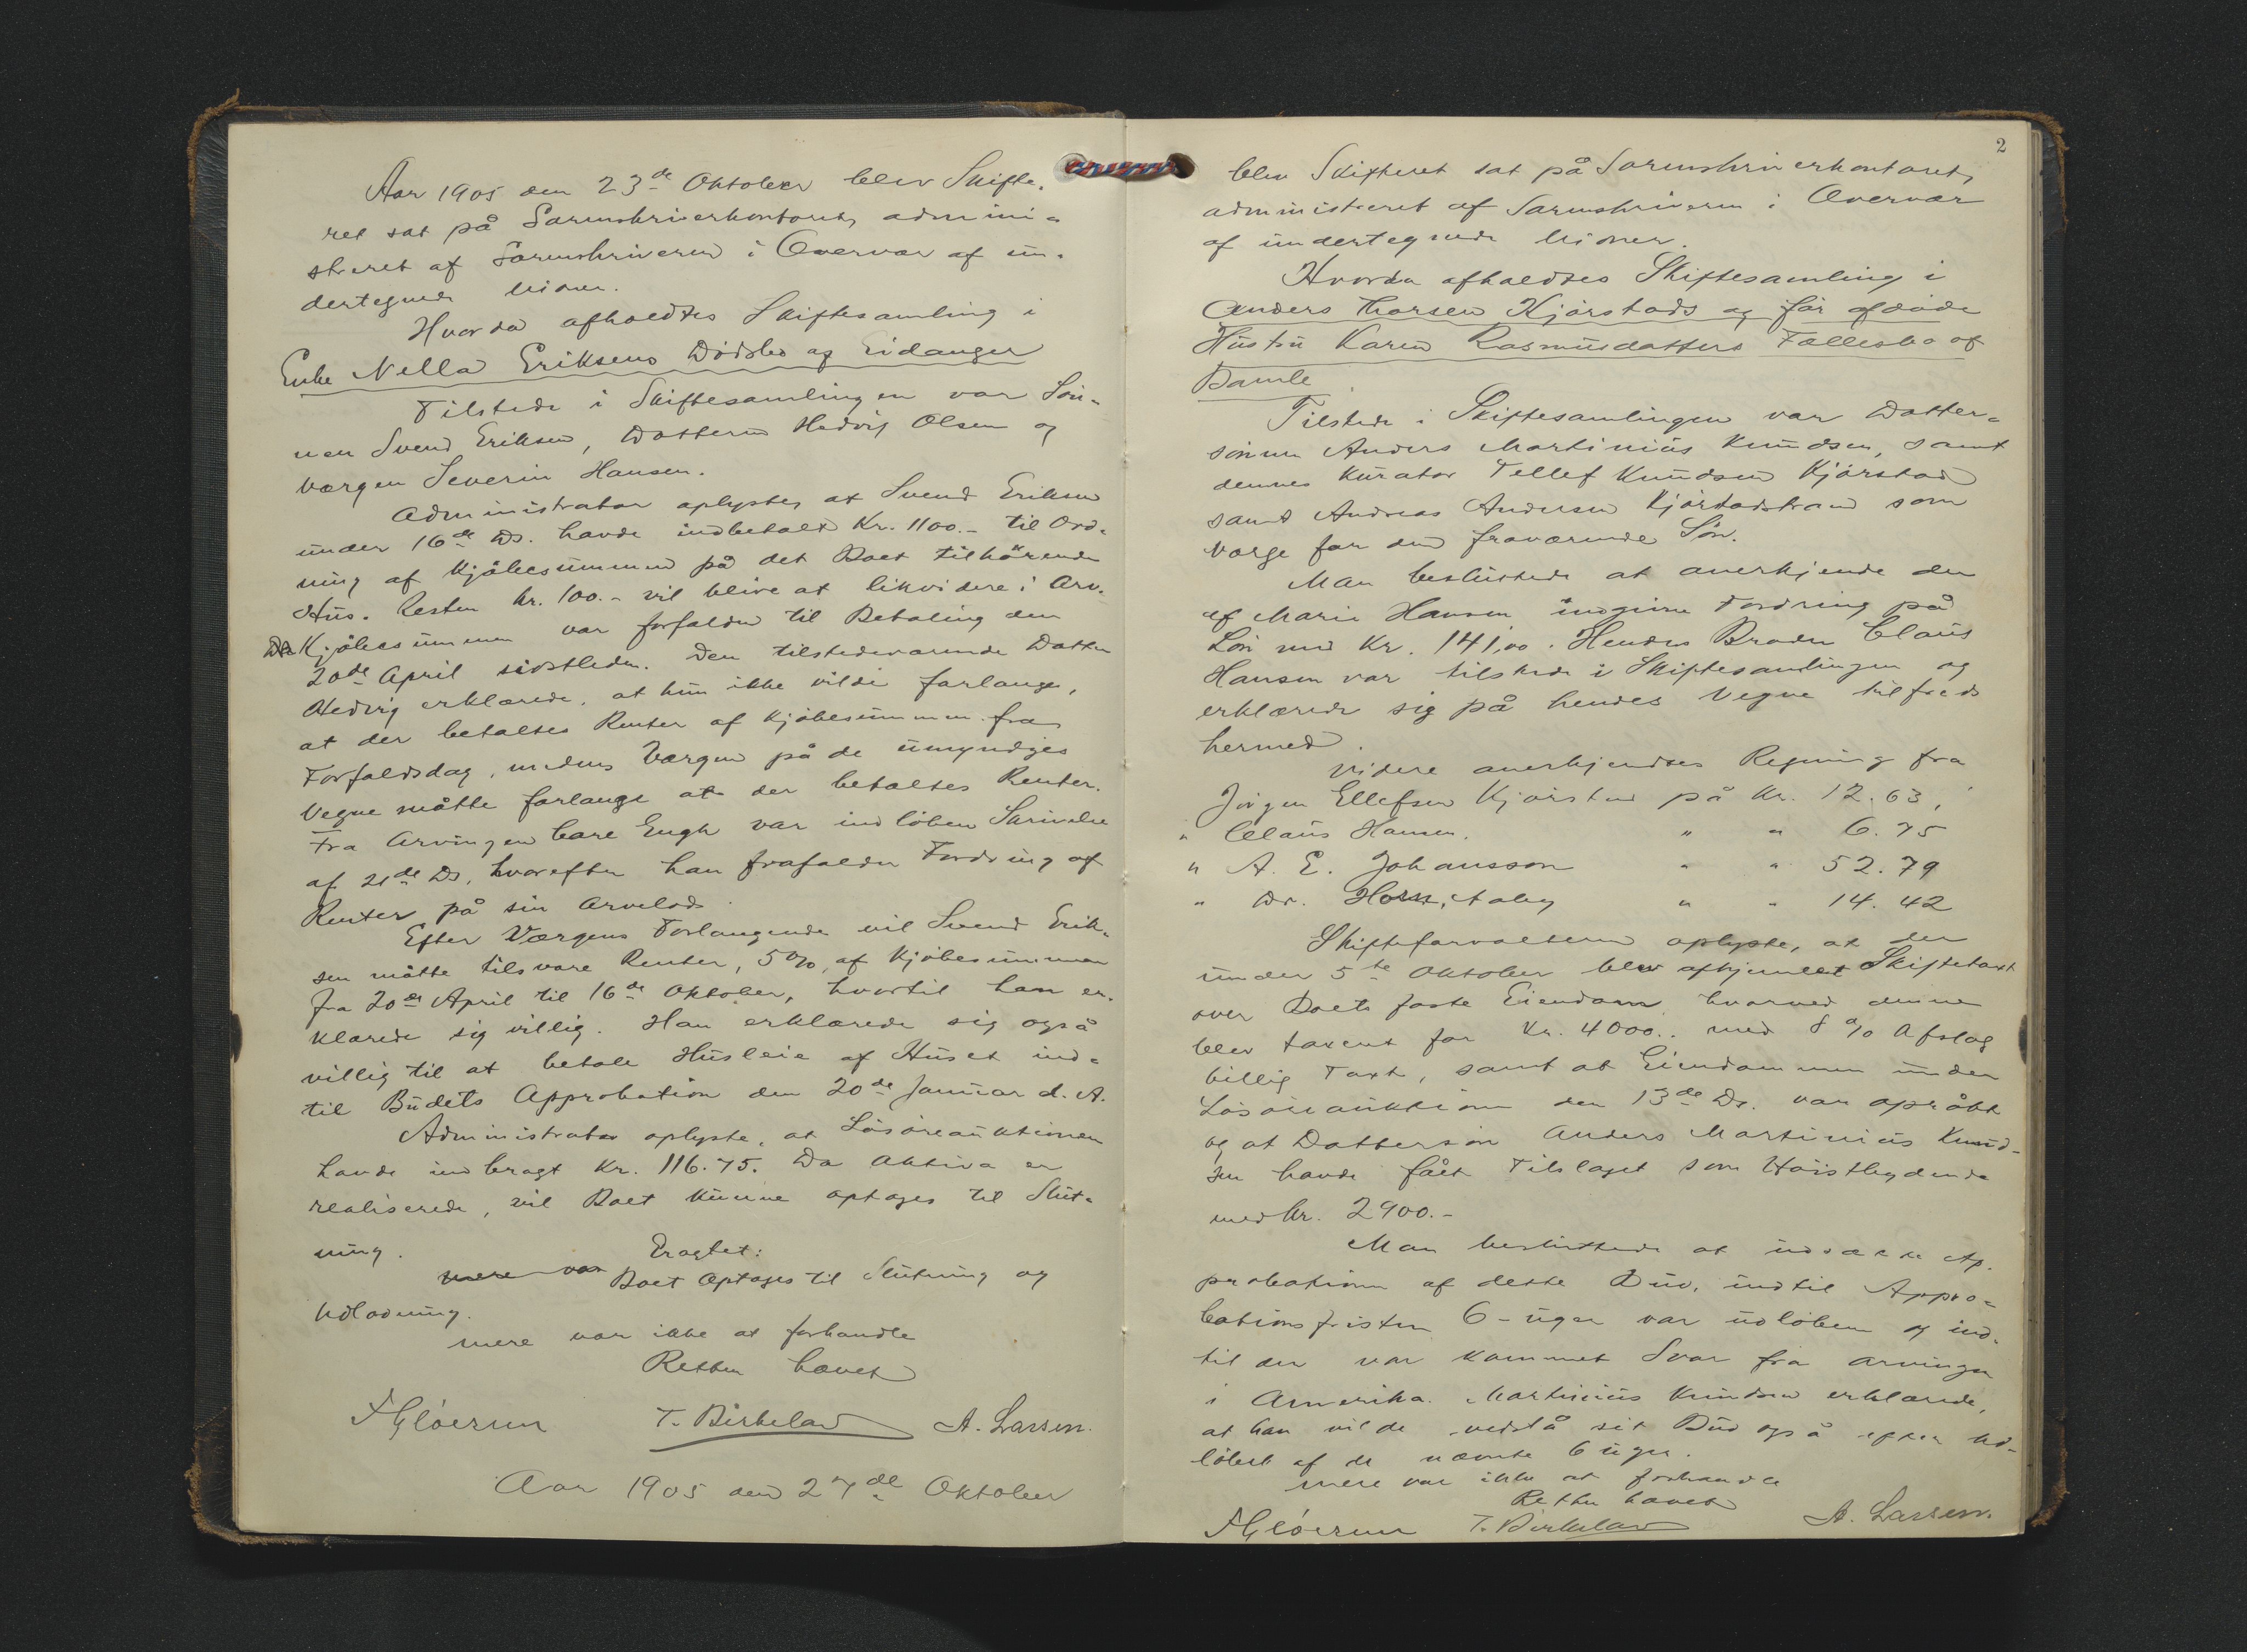 Aar 1905 den 23de Oktober blev Skifte-
ret sat på Sorenskriverkontoret, admini-
streret af Sorenskriveren i Overvær af un-
dertegnede Vidner.
Hvorda afholdtes Skiftesamling i
Enke Nella Eriksens Dødsbo af Eidanger
Tilstede i Skiftesamlingen var Søn-
nen Svend Eriksen, Datteren Hedvig Olsen og
Værgen Severin Hansen.
Administrator oplyste, at Svend Eriksen
under 16de Ds. havde indbetalt Kr. 1100.- til Ord-
ning af Kjøbesummen på det Boet tilhørende
Hus. Resten kr. 100.- vil blive at likvidere i Arv.
Kjøbesummen var forfalden til Betaling den
20de April sidstleden. Den tilstedeværende Datter
Hedvig erklærede, at hun ikke vilde forlange,
at der betaltes Renter af Kjøbesummen fra
Forfaldsdag, medens Værgen på de umyndiges
Vegne måtte forlange at der betaltes Renter.
Fra Arvingen Engh var indløben Skrivelse
af 21de Ds, hvorefter han frafalder Fordring af
Renter på sin Arvelod.
Efter Værgens Forlangende vil Svend Erik-
sen måtte tilsvare Renter, 5%, af Kjøbesummen
fra 20de April til 16de Oktober, hvortil han er-
klærede sig villig. Han erklærede sig også
villig til at betale Husleie af Huset ind-
til Budets Approbation den 20de Januar d. A.
Administrator oplyste, at Løsøreauktionen
havde indbragt Kr. 116.75. Da Aktiva er
realiserede, vil Boet kunne optages til Slut-
ning.
Eragtet:
mere var Boet optages til Slutning og
Udlodning.
mere var ikke at forhandle
Retten hævet
T. Birkeland A. Larsen.
Aar 1905 den 27de Oktober
2
blev Skifteret sat på Sorenskriverkontoret,
administreret af Sorenskriveren i Overvær
af undertegnede Vidner.
Hvorda afholdtes Skiftesamling i
Anders Thorsen Kjørstads og før afdøde
Hustru Karen Rasmusdatters Fællesbo af
Bamle
Tilstede i Skiftesamlingen var Datter-
sønnen Anders Martinius Knudsen, samt
dennes Kurator Tellef Knudsen Kjørstad
samt Andreas Andersen Kjørstadstrand som
Værge for den fraværende Søn.
Man besluttede at anerkjende den
af Marie Hansen indgivne Fordring på
Løn med Kr. 141,00. Hendes Broder Claus
Hansen var tilstede i Skiftesamlingen og
erklærede sig på hendes Vegne tilfreds
hermed.
Videre anerkjendtes Regning fra
Jørgen Ellefsen Kjørstad på Kr. 12.63,
" Claus Hansen. " " 6.75
" A. E. Johansson " " 52.79
" Dr. Horn, " " 14.42
Skifteforvalteren oplyste, at der
under 5te Oktober blev afhjemlet Skiftetaxt
over Boets faste Eiendom, hvorved denne
blev taxeret for Kr. 4000.. med 8% Afslag
billig Taxt, samt at Eiendommen under
Løsøreauktion den 13de Ds. var opråbt
og at Dattersøn Anders Martinius Knud-
sen havde fået Tilslaget som Høistbydende
med kr. 2900.-
Man besluttede at udsætte Ap-
probationen af dette Bud, indtil Appro-
bationsfristen 6-uger var udløben og ind-
til der var kommet Svar fra Arvingen
i Amerika. Martinius Knudsen erklærede,
at han vilde vedstå sit Bud også efter Ud-
løbet af de nævnte 6 uger.
mere var ikke at forhandle
Retten hævet
T. Birkeland A. Larsen.